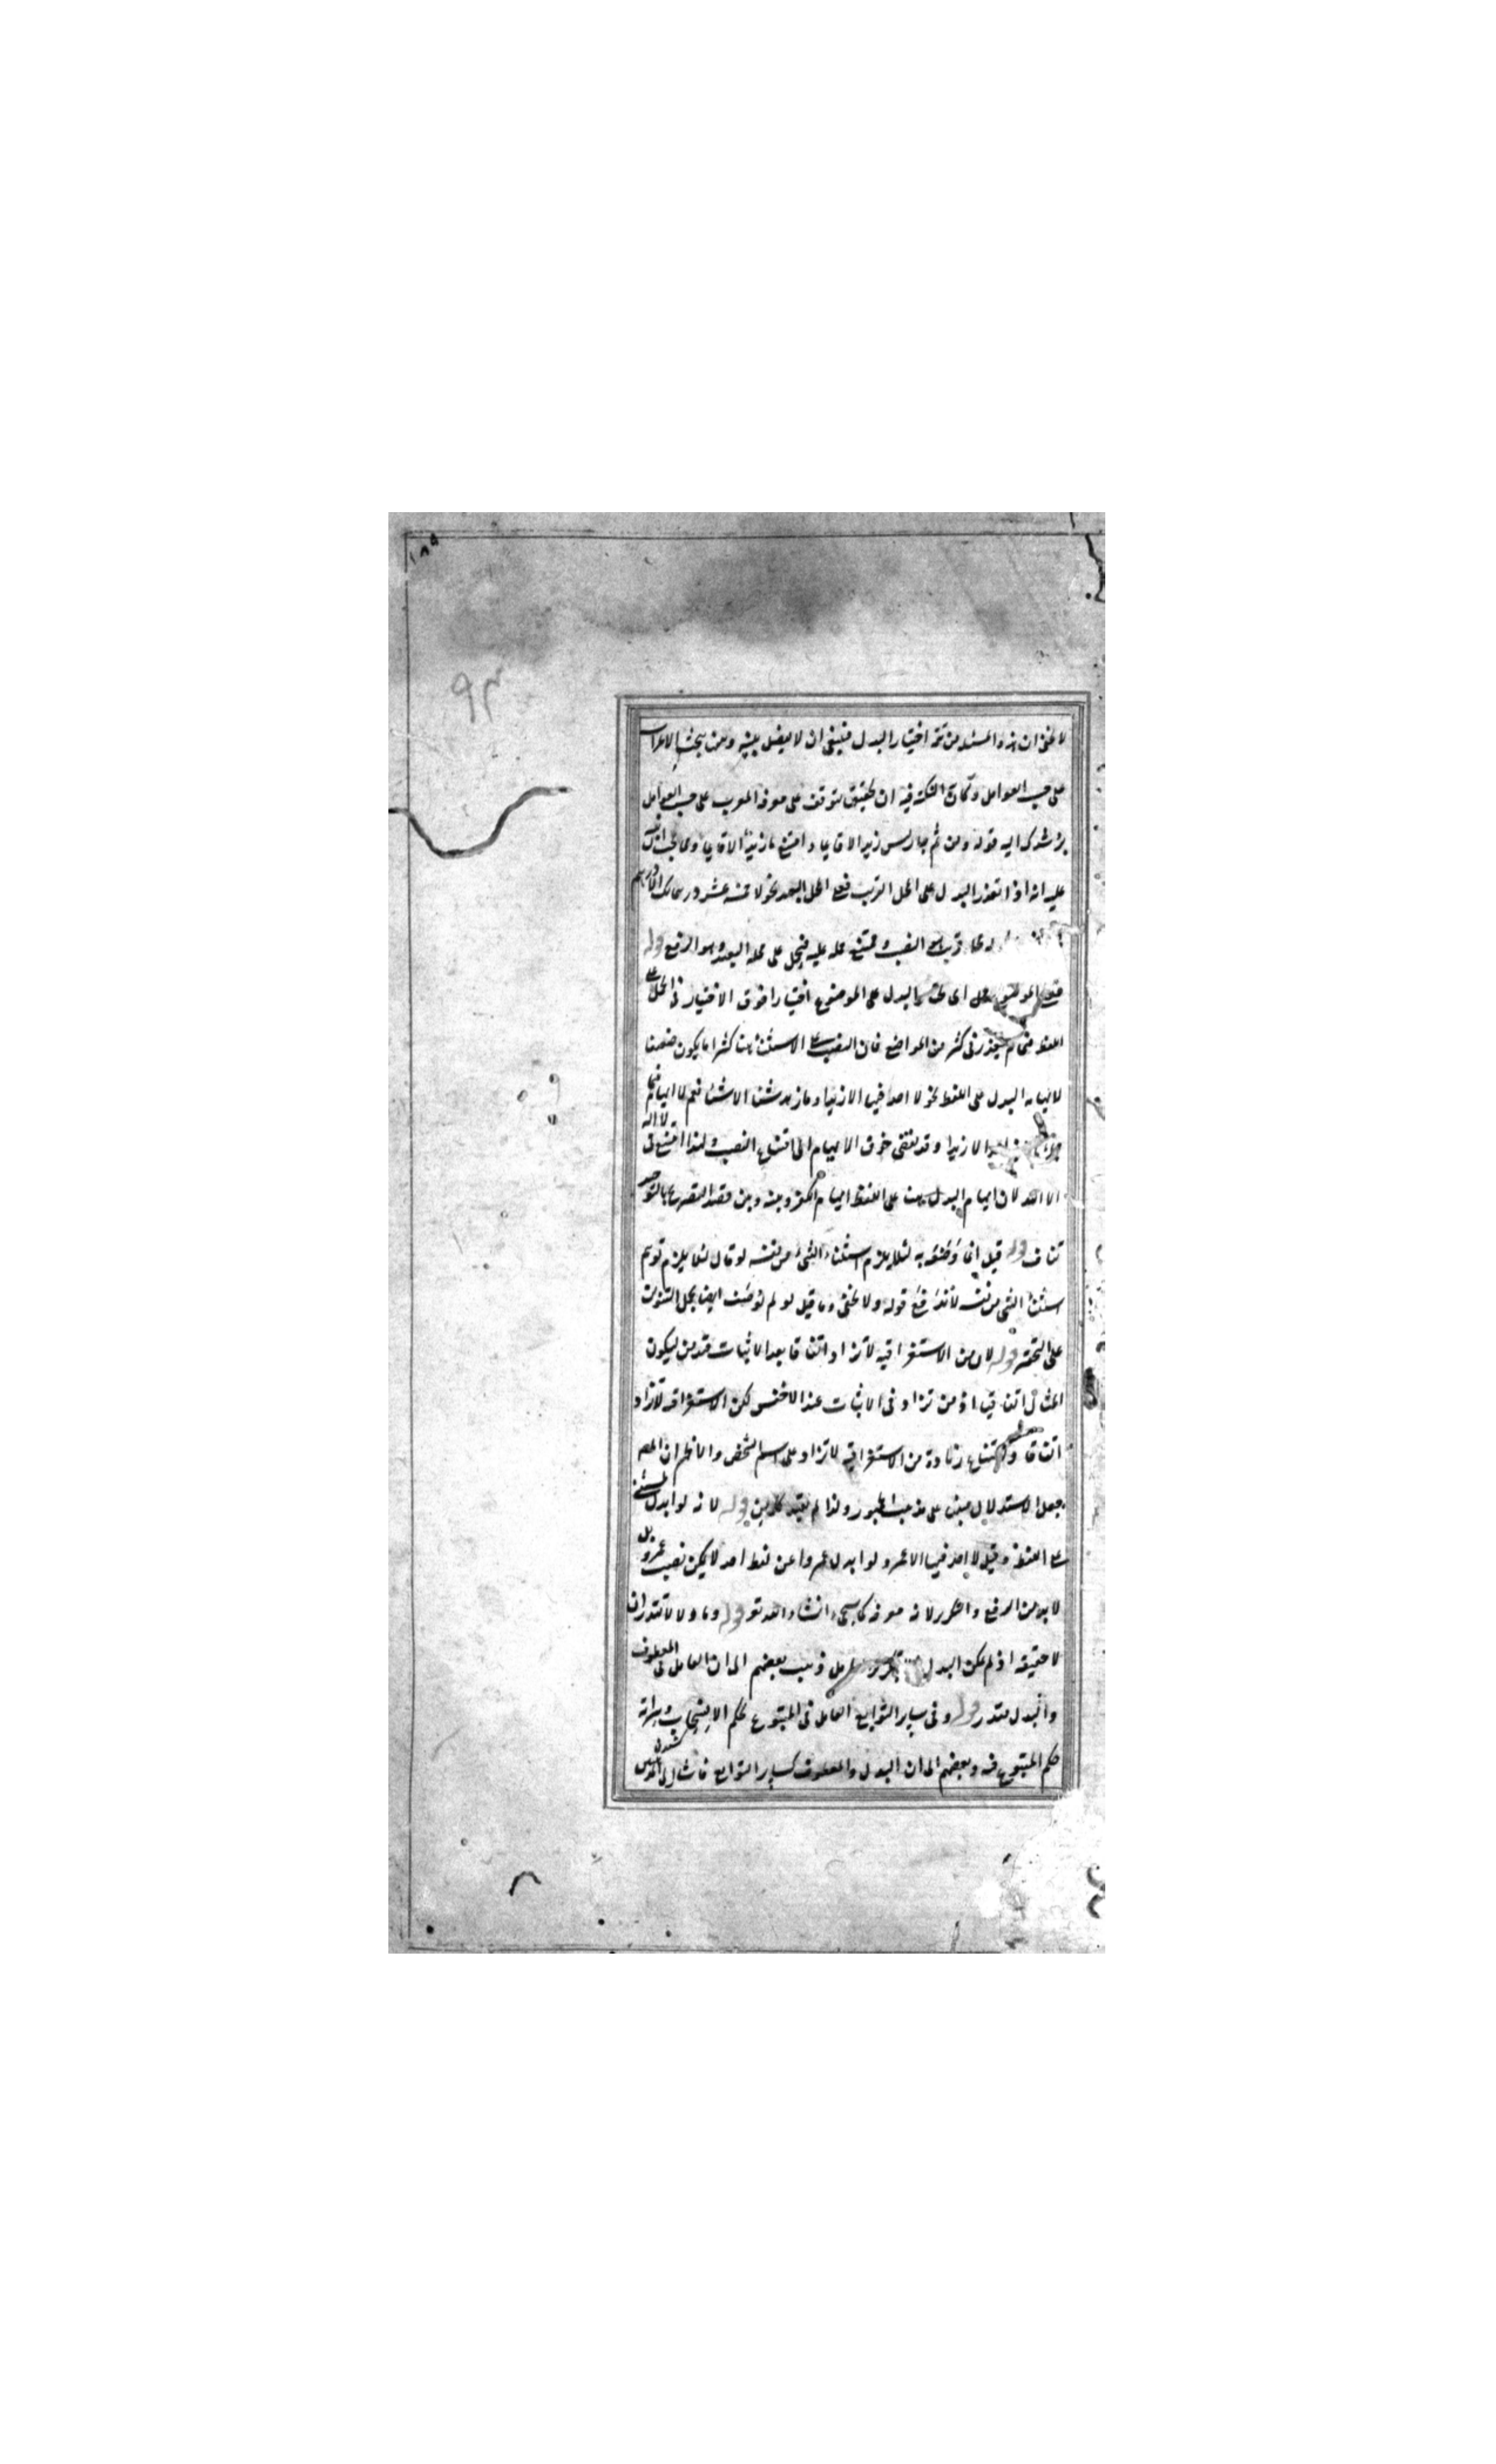 ١٨٥
٩٣
لا يخفى ان هذا والمستثنى من تتمة اختيار البدل فينبغى ان لا يفصل بينه وبين بحث الاعراب
على حسب العوامل وكان النكتة فيه ان تحقيقه يتوقف على معرفة المعرب على حسب العوامل
يرشدك اليه قوله ومن ثم جاز ليس زيد الا قايما وامتنع ما زيد الا قايما ومما يجب ان
عليه انه اذا تعذر البدل على المحل القريب فعلى المحل البعيد نحو لا خمسة عشر درهما لك الا درهم
قريب هو النصب ويمتنع حمله عليه فيحمل على محله البعيد وهو الرفع قوله
فعلى الموضع اى يختار البدل على الموضع اختيارا فوق الاختيار فى الحمل على
اللفظ متى لم يتعذر فى كثير من المواضع فان النصب على الاستثناء كثيرا ما يكون ضعيفا
لايهامه البدل على اللفظ نحو لا احد فيها الا زيدا وما زيد شيئا الا شيئا نعم لا ايهام فى
الا زيدا وقد يفضى خوف الايهام الى امتناع النصب ولهذا امتنع فى لا اله
الا الله لان ايهام البدل على اللفظ ايهام الكفر وبينه وبين قصد التصريح بالتوحيد
تناف قوله قيل انما وصفه به لئلا يلزم استثناء الشئ من نفسه لو قال لئلا يلزم توهم
استثناء الشئ من نفسه لاندفع قوله ولا يخفى وما قيل لو لم يوصف ايضا يحمل التنوين
على التحقير قوله لان من الاستغراقية لا تزاد اتفاقا بعد الاثبات قد من ليكون
المثال اتفاقيا اذ من تزاد فى الاثبات عند الاخفش لكن الاستغراقية لا تزاد
اتفاقا وامتناع زيادة من الاستغراقية لا تزاد على اسم الشخص والاظهر ان المص
جعل الاستدلال مبنى على مذهب الجمهور ولذا لم يقيد قوله لانه لو ابدل المستثنى
على اللفظ وقيل لا احد فيها الا عمرو لو ابدل عمروا عن لفظ احد لا يمكن نصب عمرو بل
لا بد من الرفع والتكرير لانه معرفة كما سيجئ انشاء الله تع قوله وما ولا لا تقدران
لا حقيقة اذ لم يكن البدل بتكرير العامل ذهب بعضهم الى ان العامل فى المعطوف
والبدل مقدر قوله وفى ساير التوابع العامل فى المتبوع بحكم الانسحاب وسراية
حكم المتبوع فيه وبعضهم الى ان البدل والمعطوف كساير التوابع فاشار الى المذهبين